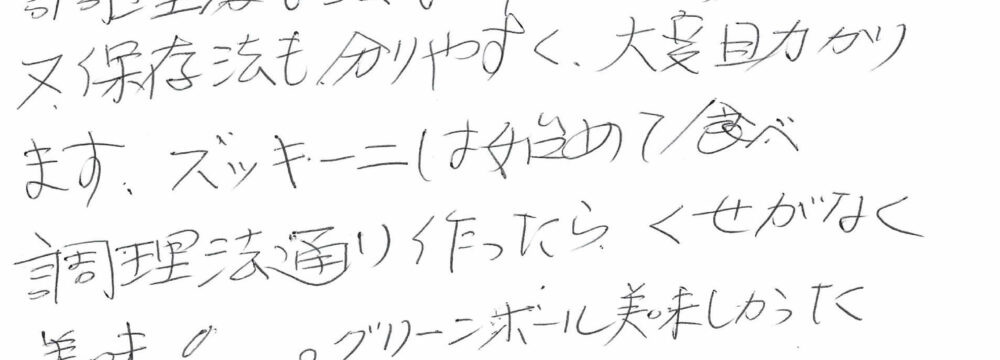 調理法
又保存法も分りやすく、大変目力かり
ます、ズッキーニは始めて食べ
調理法通り作ったら、くせがなく
美味 。グリーンボール美味しかった